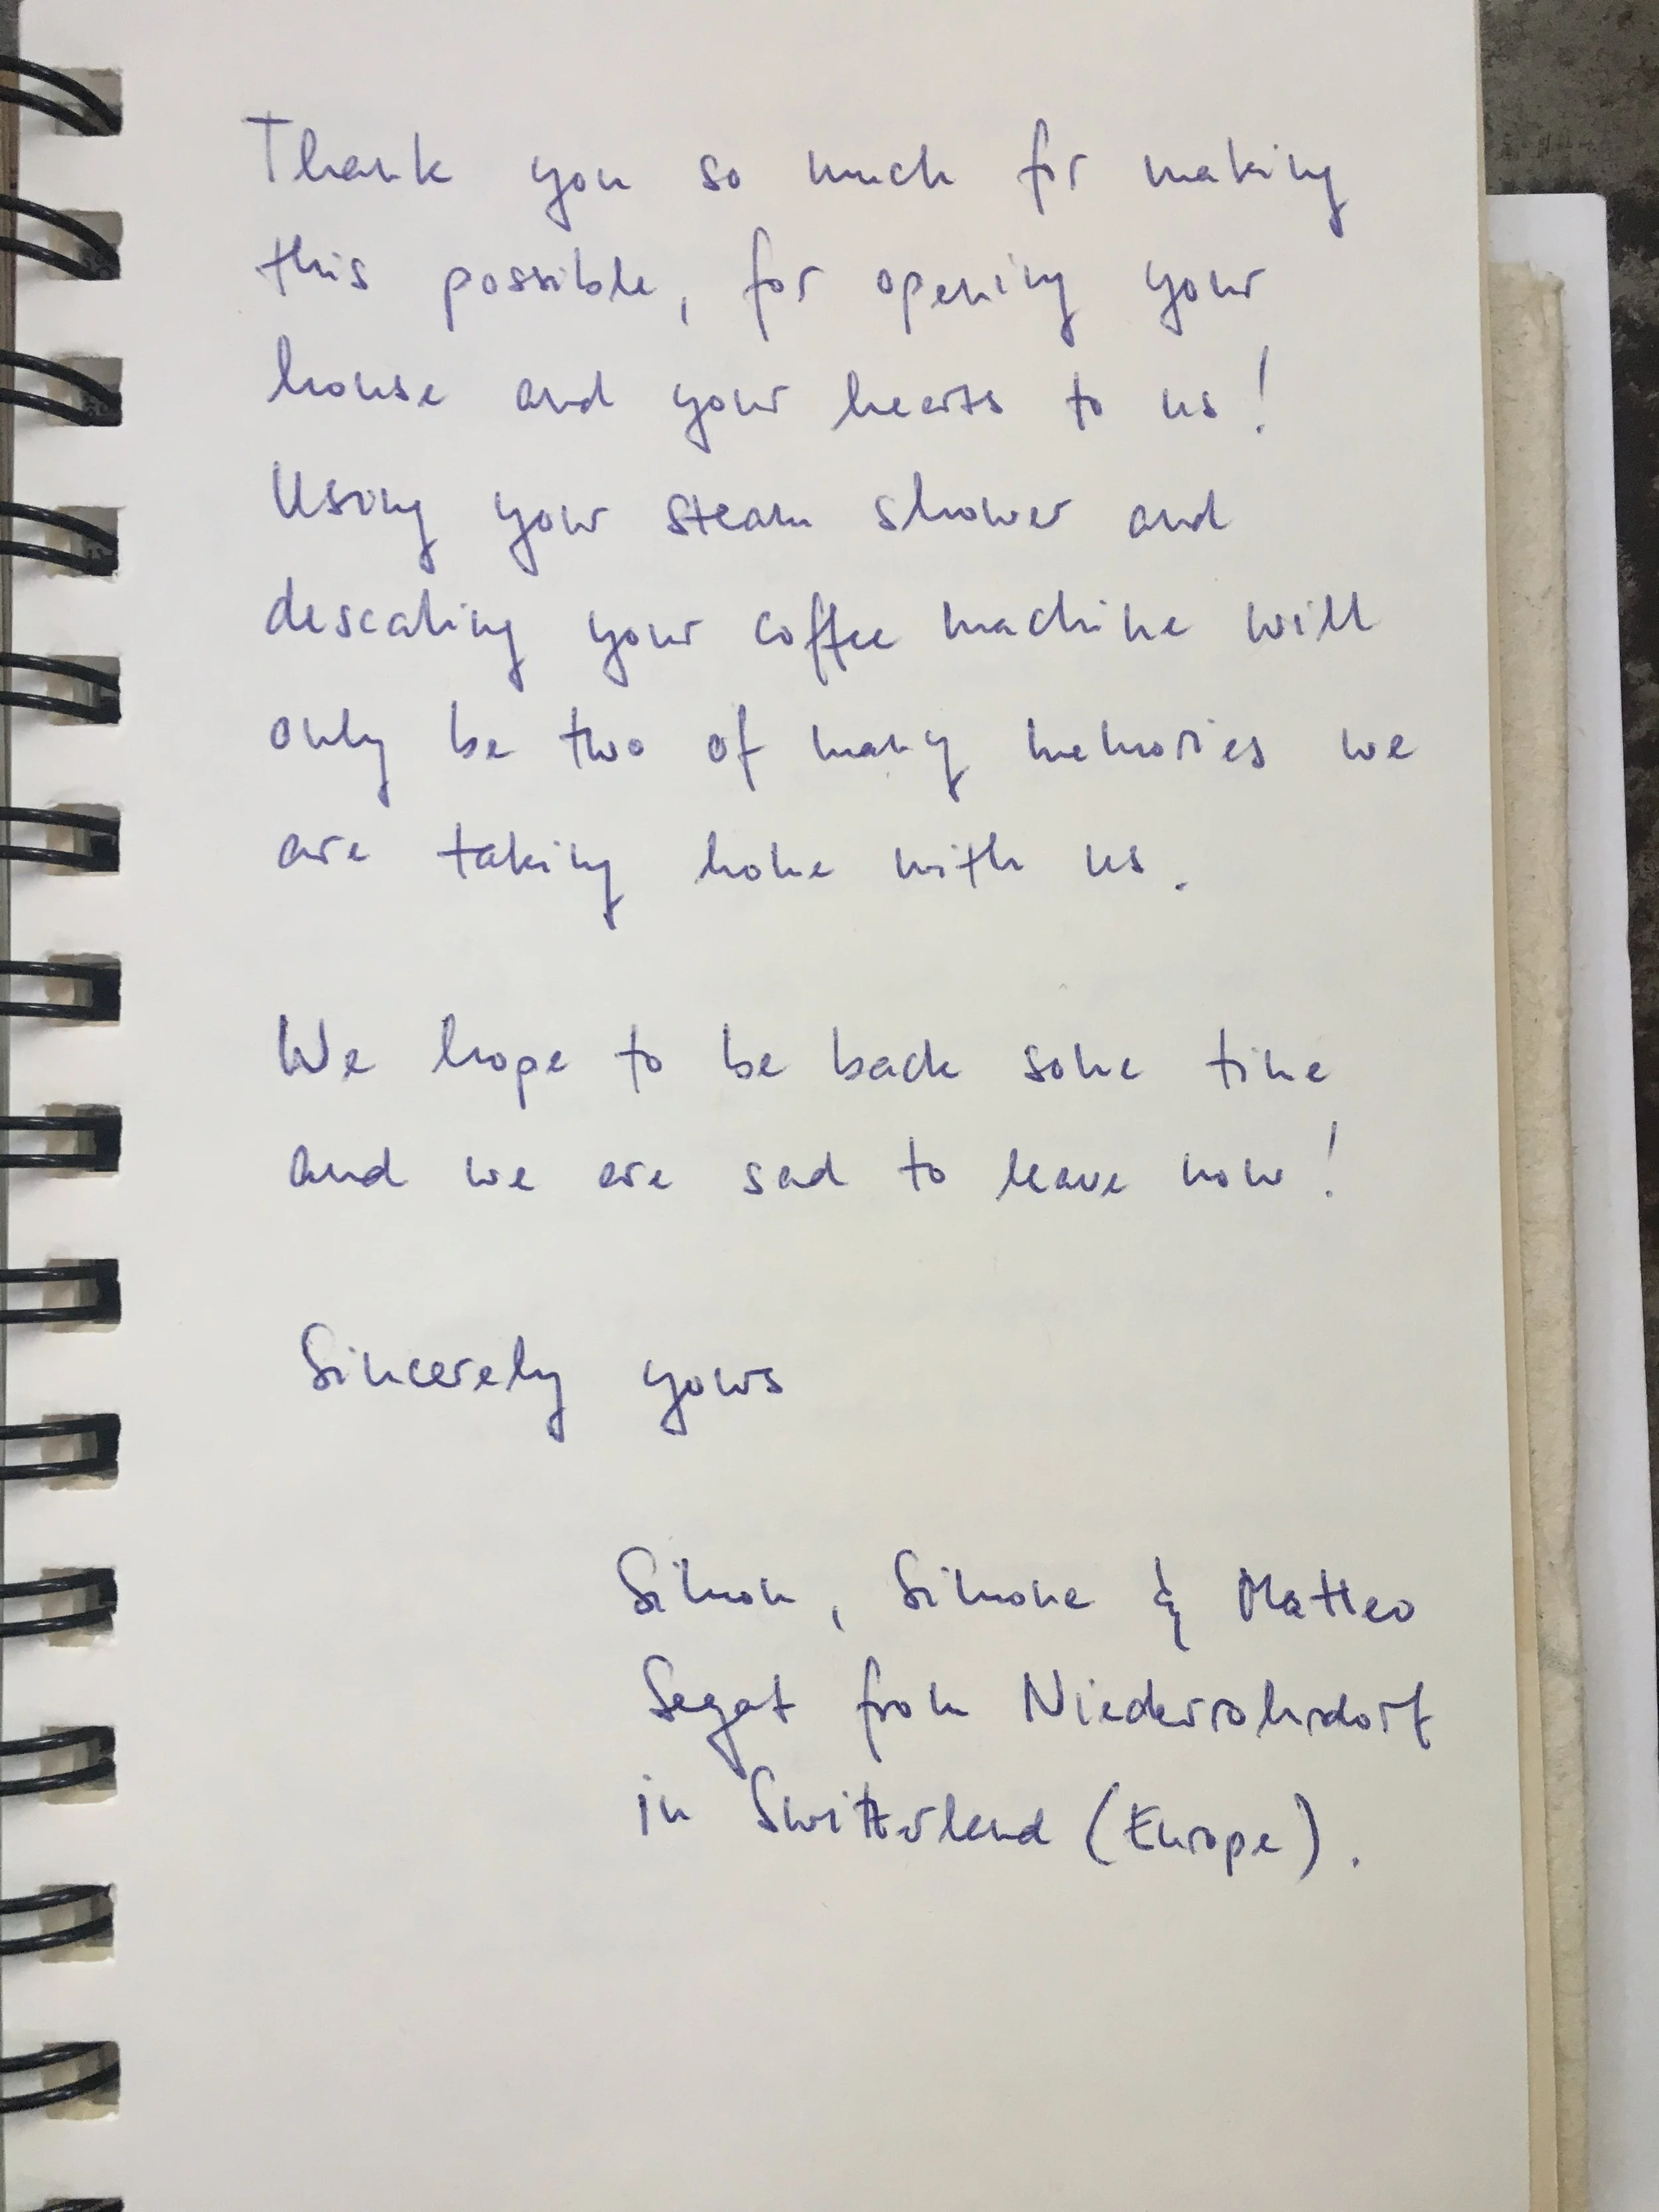 Thank you so much for making
this possible, for opening your
house and your hearts to us!
Using your steam shower and
descaling your coffee machine will
only be two of many memories we
are taking home with us.
We hope to be back some time
and we are sad to leave now!
Sincerely yours
Simon, Simone & Matteo
Segat from Niederrohrdorf
in Switzerland (Europe).